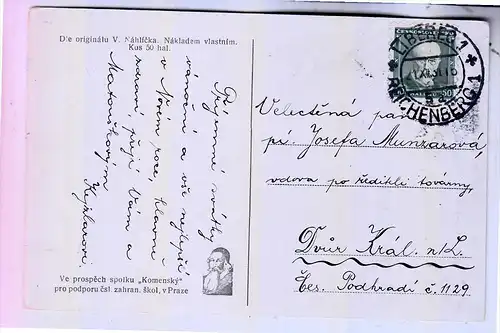 Dle originálu V. Náhlíčka. Nákladem vlastním.
Kus 50 hal.
Příjemné svátky
vánoční a vše nejlepší
v Novém roce, hlavně
zdraví, přejí Vám a
Matouškovým
Kejzlarovi.
Ve prospěch spolku „Komenský"
pro podporu čsl. zahran. škol, v Praze
LIBEREC 1
REICHENBERG 1
ČESKOSLOVENSKO
50
Velectěná paní
pí. Josefa Munzarová,
vdova po řediteli továrny,
Dvůr Král. n/L.
čes. Podhradí č. 1129.